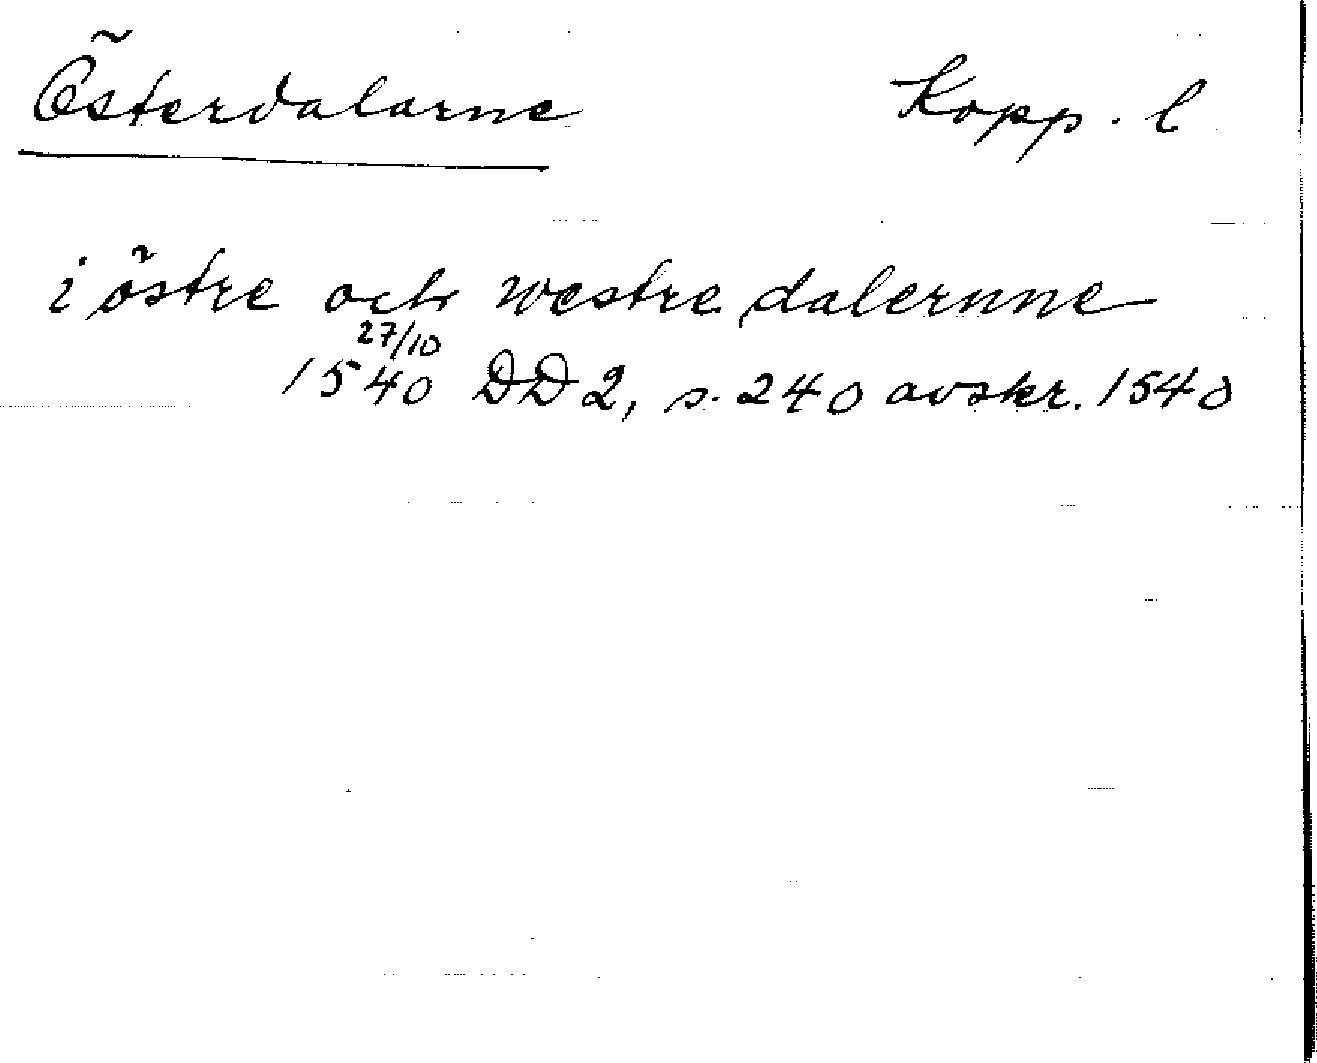 Österdalarne Kopp. l
i östre och westre dalernne
27/10
1540 DD 2, s. 240 avskr. 1540